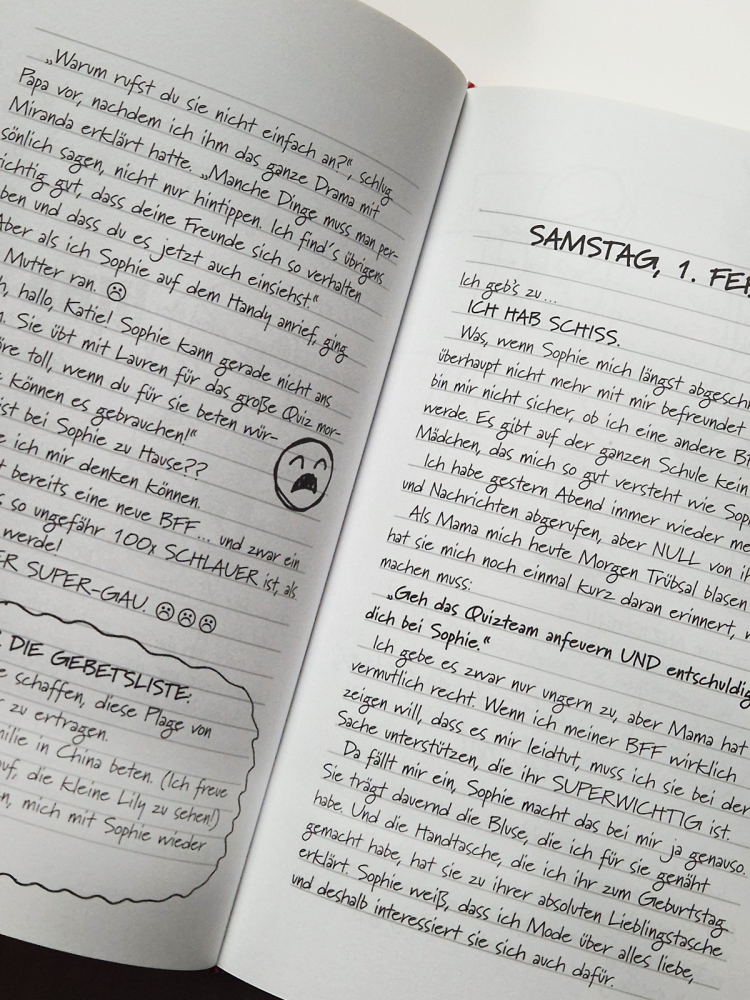 „Warum rufst du sie nicht einfach an?“, schlug
Papa vor, nachdem ich ihm das ganze Drama mit
Miranda erklärt hatte. „Manche Dinge muss man per-
sönlich sagen, nicht nur hintippen. Ich find's übrigens
gut, dass deine Freunde sich so verhalten
und dass du es jetzt auch einsiehst.“
Aber als ich Sophie auf dem Handy anrief, ging
Mutter ran. ☹
hallo, Katie! Sophie kann gerade nicht ans
Sie übt mit Lauren für das große Quiz mor-
toll, wenn du für sie beten wür-
können es gebrauchen!“
ist bei Sophie zu Hause??
ich mir denken können.
bereits eine neue BFF ... und zwar ein
so ungefähr 100x SCHLAUER ist, als
werde!
SUPER-GAU. ☹☹☹
DIE GEBETSLISTE:
schaffen, diese Plage von
zu ertragen.
in China beten. (Ich freue
die kleine Lily zu sehen!)
mich mit Sophie wieder
SAMSTAG, 1.
Ich geb's zu ...
ICH HAB SCHISS.
Was, wenn Sophie mich längst
überhaupt nicht mehr mit mir befreundet
bin mir nicht sicher, ob ich eine andere
werde. Es gibt auf der ganzen Schule kein
Mädchen, das mich so gut versteht wie
Ich habe gestern Abend immer wieder
und Nachrichten abgerufen, aber NULL von
Als Mama mich heute Morgen Trübsal blasen
hat sie mich noch einmal kurz daran erinnert,
machen muss:
„Geh das Quizteam anfeuern UND
dich bei Sophie.“
Ich gebe es zwar nur ungern zu, aber Mama hat
vermutlich recht. Wenn ich meiner BFF wirklich
zeigen will, dass es mir leidtut, muss ich sie bei der
Sache unterstützen, die ihr SUPERWICHTIG ist.
Da fällt mir ein, Sophie macht das bei mir ja genauso.
Sie trägt dauernd die Bluse, die ich für sie genäht
habe. Und die Handtasche, die ich ihr zum Geburtstag
gemacht habe, hat sie zu ihrer absoluten Lieblingstasche
erklärt. Sophie weiß, dass ich Mode über alles liebe,
und deshalb interessiert sie sich auch dafür.